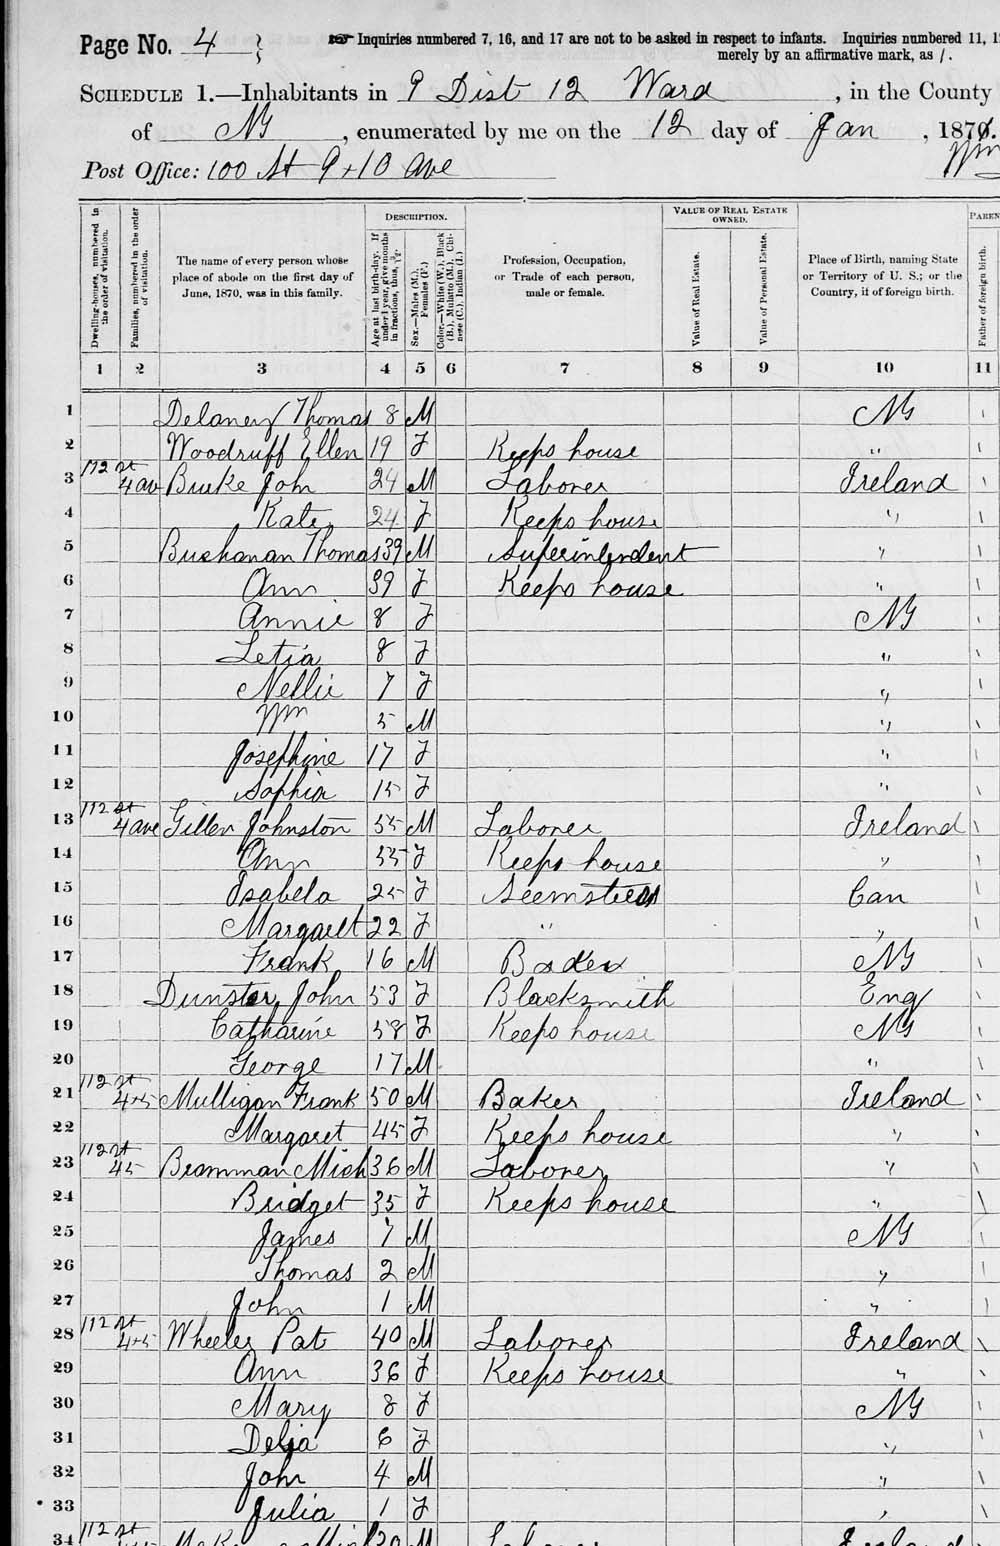 Page No. 4
☞ Inquiries numbered 7, 16, and 17 are not to be asked in respect to infants. Inquiries numbered 11, 1
merely by an affirmative mark, as /.
SCHEDULE 1.—Inhabitants in 9 Dist 12 Ward, in the County
of NY, enumerated by me on the 12 day of Jan, 187
Post Office: 100 St 9 + 10 ave Wm
Dwelling-houses, numbered in the order of visitation.
Families, numbered in the order of visitation.
The name of every person whose place of abode on the first day of June, 1870, was in this family.
DESCRIPTION.
Age at last birth-day. If under 1 year, give months in fractions, thus,
Sex.—Males (M.), Females (F.)
Color.—White (W.), Black (B.), Mulatto (M.), Chinese (C.), Indian (I.)
Profession, Occupation, or Trade of each person, male or female.
VALUE OF REAL ESTATE OWNED.
Value of Real Estate.
Value of Personal Estate.
Place of Birth, naming State or Territory of U. S.; or the Country, if of foreign birth.
PAREN
Father of foreign birth.
1 2 3 4 5 6 7 8 9 10 11
1 Delaney Thomas 8 M NY /
2 Woodruff Ellen 19 F Keeps house " /
112 st
3 4 av Burke John 24 M Laborer Ireland /
4 Kate 24 F Keeps house " /
5 Buchanan Thomas 39 M Superintendent " /
6 Ann 39 F Keeps house " /
7 Annie 8 F NY /
8 Letia 8 F " /
9 Nellie 7 F " /
10 Wm 5 M " /
11 Josephine 17 F " /
12 Sophia 15 F " /
112 st
13 4 ave Gillen Johnston 55 M Laborer Ireland /
14 Ann 55 F Keeps house " /
15 Isabela 25 F Seemstress Can /
16 Margaret 22 F " " /
17 Frank 16 M NY /
18 Dunster, John 53 F Blacksmith Eng /
19 Catharine 58 F Keeps house NY /
20 George 17 M " /
112 st
21 4+5 Mulligan Frank 50 M Baker Ireland /
22 Margaret 45 F Keeps house " /
112 st
23 45 Bramman Mich 36 M Laborer " /
24 Bridget 35 F Keeps house " /
25 James 7 M NY /
26 Thomas 2 M " /
27 John 1 M " /
112 st
28 4+5 Wheeler Pat 40 M Laborer Ireland /
29 Ann 36 F Keeps house " /
30 Mary 8 F NY /
31 Delia 6 F " /
32 John 4 M " /
33 Julia 1 F " /
112 st
34